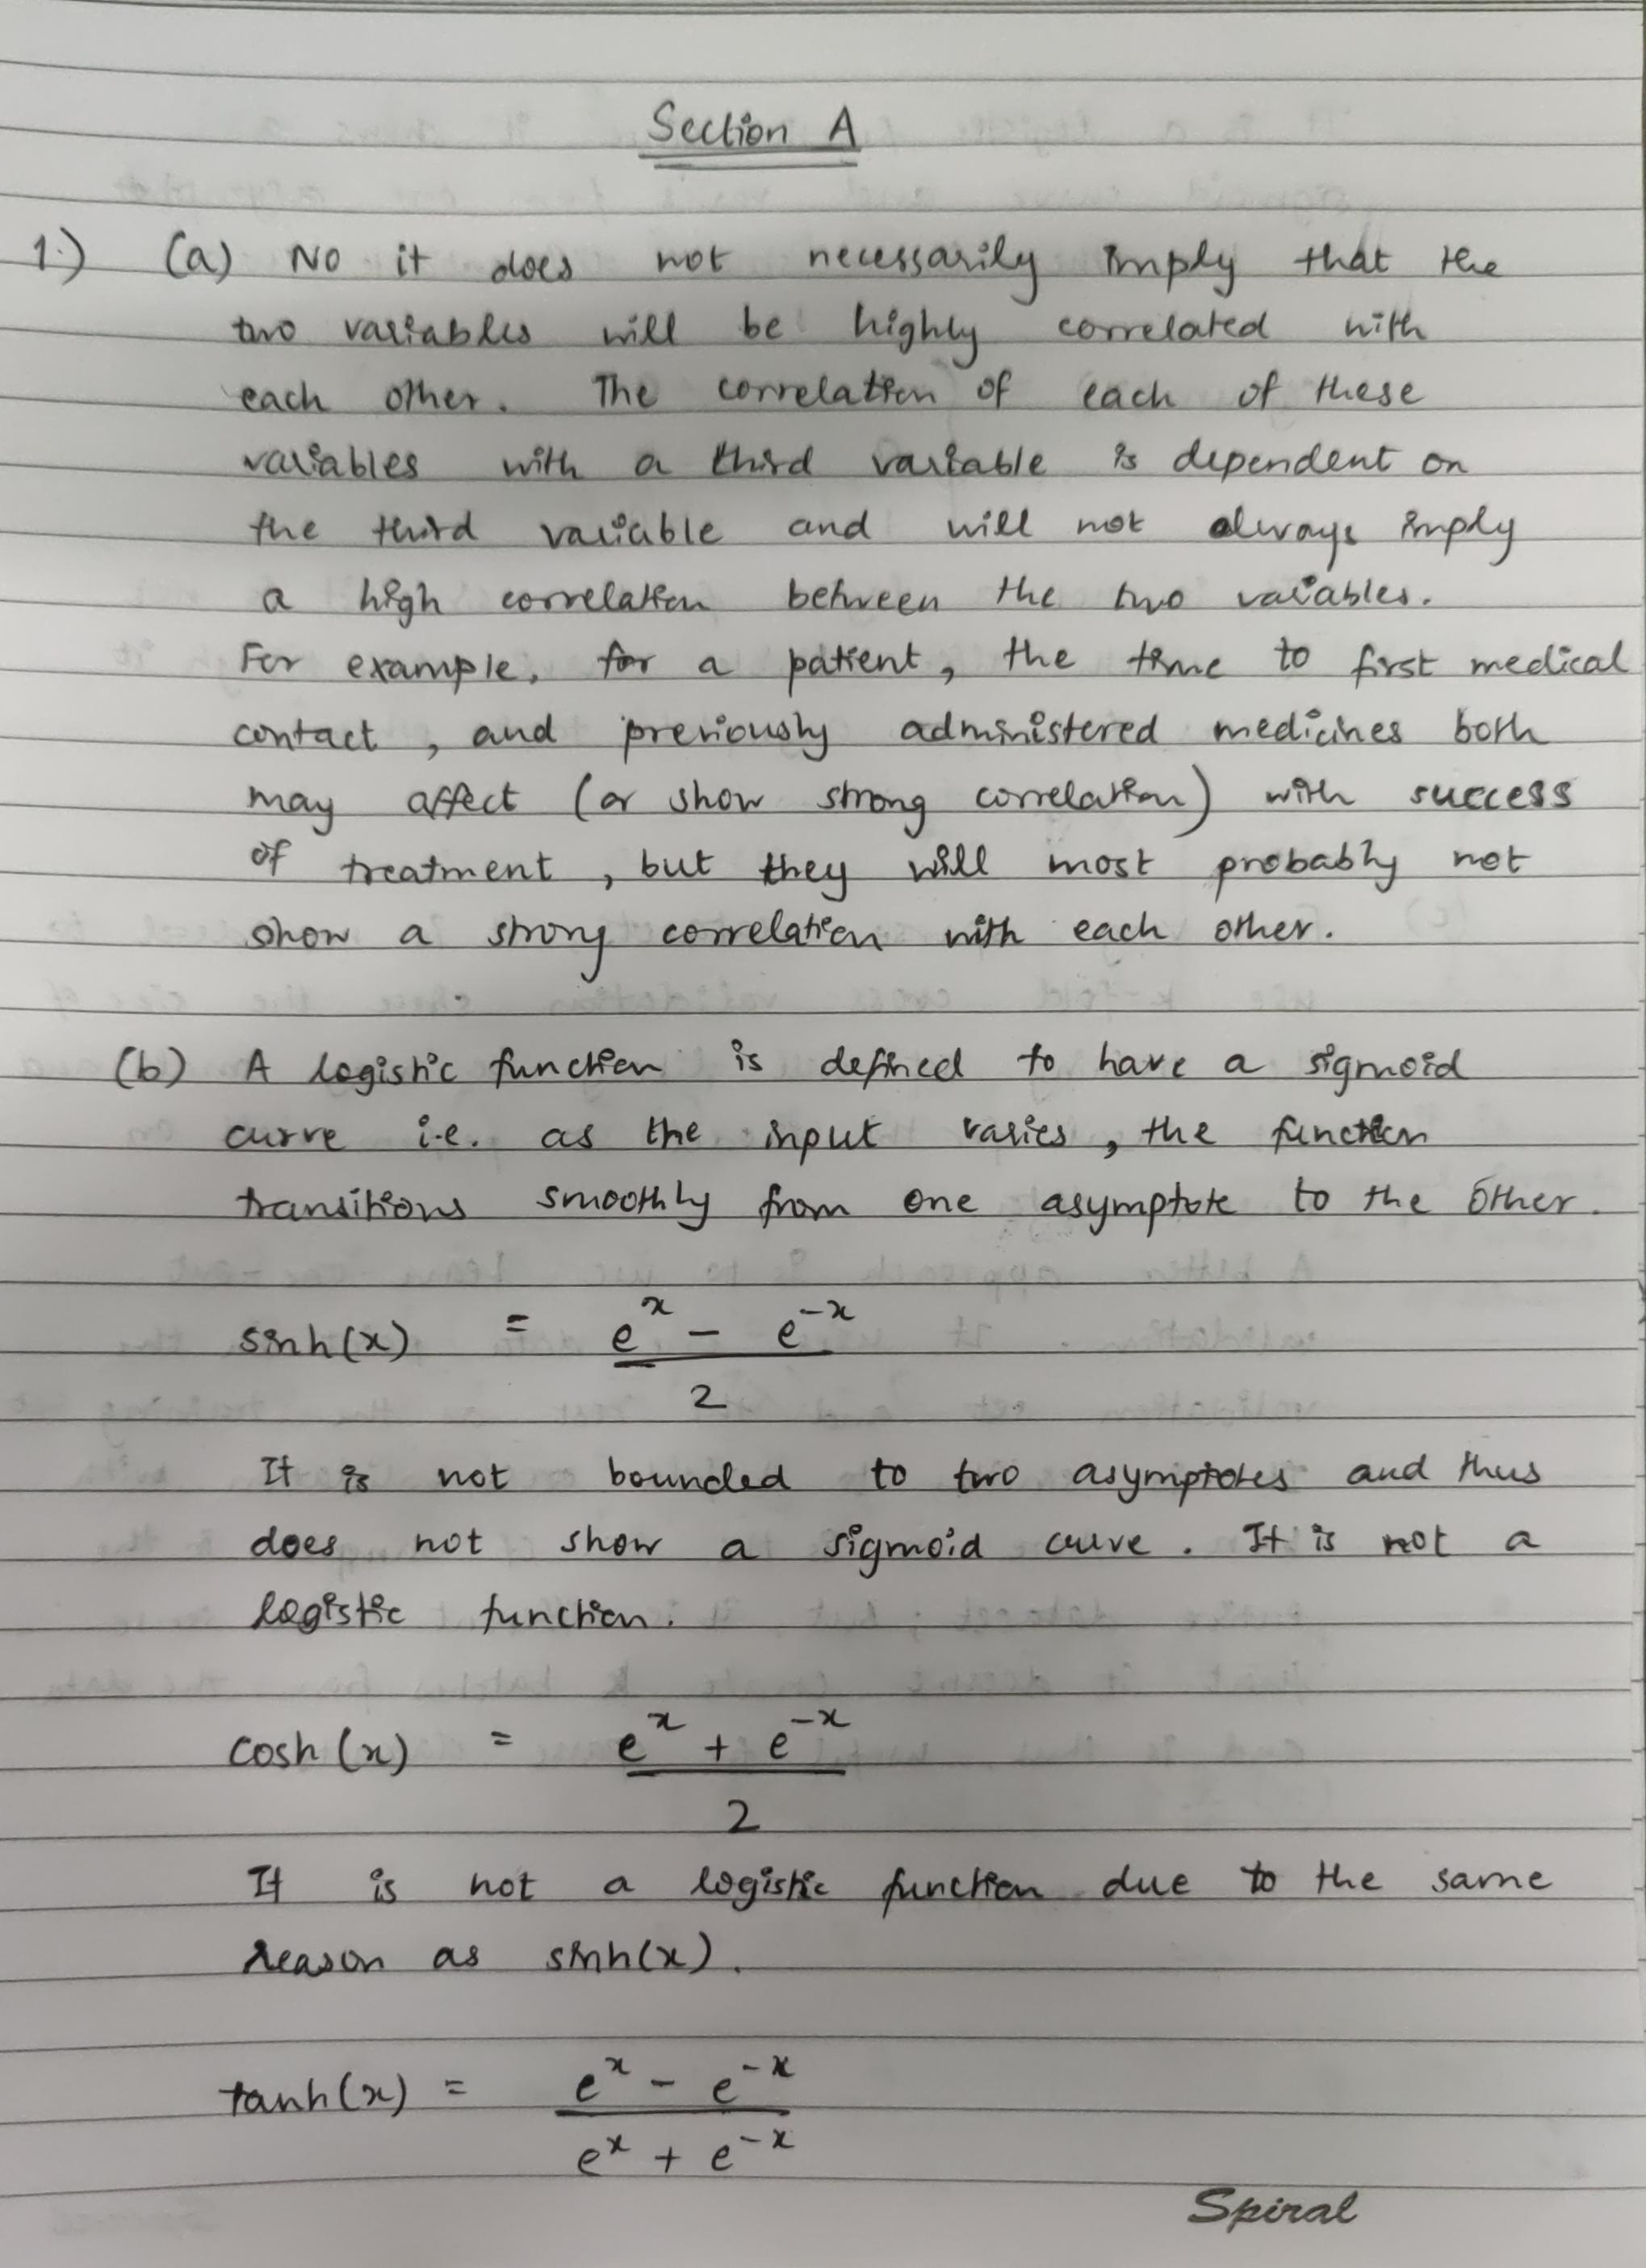 Section A
1.) (a) No it does not necessarily imply that the
two variables will be highly correlated with
each other. The correlation of each of these
variables with a third variable is dependent on
the third variable and will not always imply
a high correlation between the two variables.
For example, for a patient, the time to first medical
contact, and previously administered medicines both
may affect (or show strong correlation) with success
of treatment, but they will most probably not
show a strong correlation with each other.
(b) A logistic function is defined to have a sigmoid
curve i.e. as the input varies, the function
transitions smoothly from one asymptote to the other.
sinh(x) = (e^x - e^-x) / 2
It is not bounded to two asymptotes and thus
does not show a sigmoid curve. It is not a
logistic function.
cosh(x) = (e^x + e^-x) / 2
It is not a logistic function due to the same
reason as sinh(x).
tanh(x) = (e^x - e^-x) / (e^x + e^-x)
Spiral